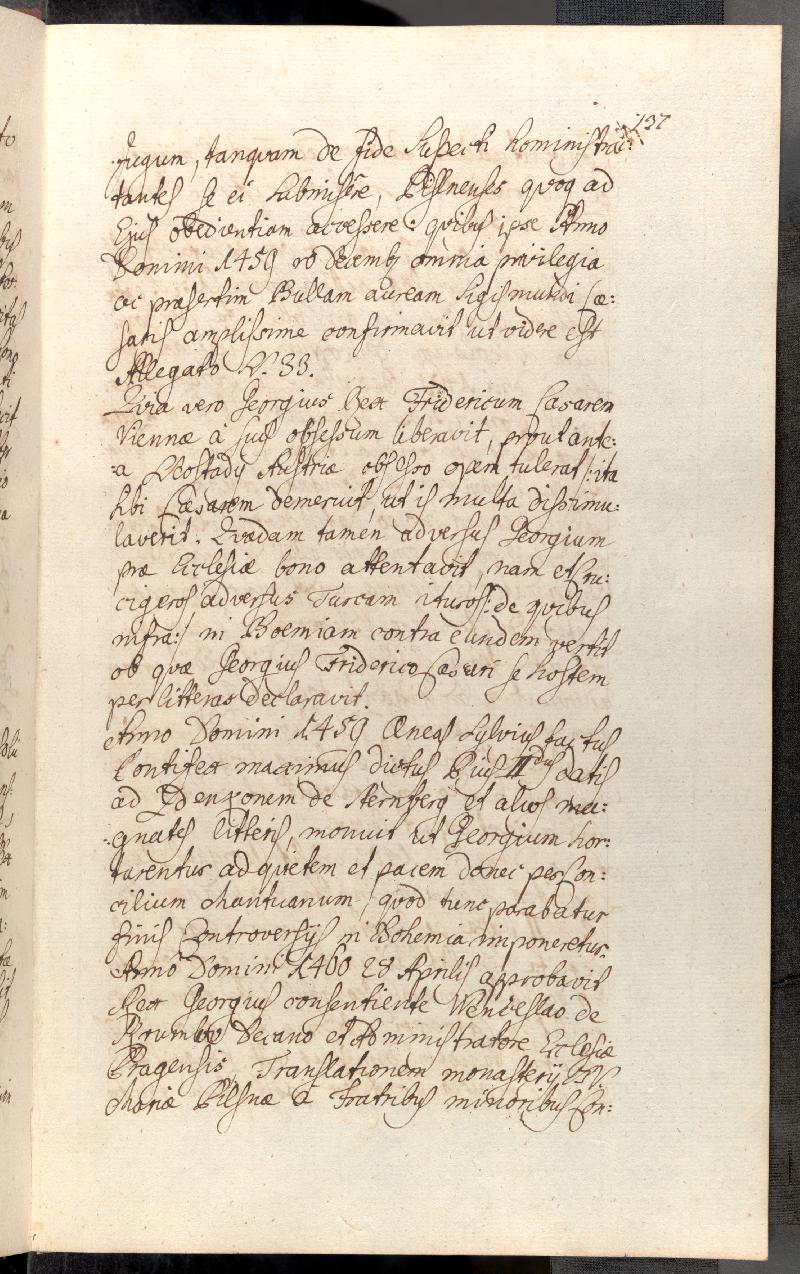 137
Jugum, tanquam de fide suspecti hominis tra:
tantes se ei submisêre, Pilsnenses quoq ad
Ejus obedientiam accessere: quibus ipse Anno
Domini 1459 Decemb omnia privilegia
ac præsertim Bullam auream Sigismundi Cæ:
saris amplissime confirmavit ut videre est
Allegato N. 33.
Qvia vero Georgius Rex Fridericum Cæsarem
Viennæ à suis obsessum liberavit, prout ante:
:a Neostadij Austriæ obsesso opem tulerat /: ita
sibi Cæsarem demeruit, ut is multa dissimu:
laverit. Qvædam tamen adversus Georgium
præ Ecclesiæ bono attentavit, nam et Cru:
cigeros adversus Turcam ituros /: de qvibus
infra :/ in Boemiam contra eundem vertit
ob quæ Georgius Friderico Cæsari se hostem
per litteras declaravit.
Anno Domini 1459 Æneas Sylvius factus
Pontifex maximus dictus Pius II dus datis
ad Zdenkonem de Sternberg et alios ma:
:gnates litteris, monuit ut Georgium hor:
tarentur ad quietem et pacem donec per Con:
cilium Mantuanum / quod tunc parabatur
finis Controversijs in Bohemia imponeretur.
Anno Domini 1460 28 Aprilis approbavit
Rex Georgius consentiente Wenceslao de
Krumlov Decano et Administratore Ecclesiæ
Pragensis, Translationem monasterij B. V.
Mariæ Pilsnæ à Fratribus minoribus Con: